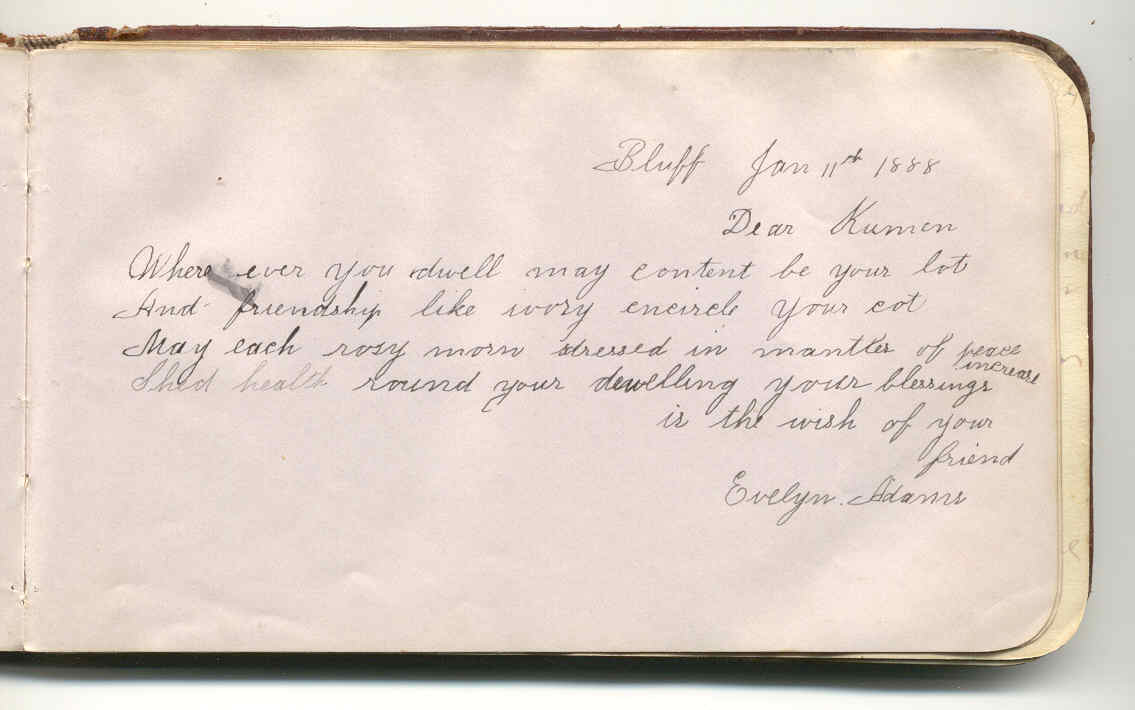 Bluff Jan 11th 1888
Dear Kumen
Where ever you dwell may content be your lot
And friendship like ivory encircle your cot
May each rosy morn dressed in mantles of peace
Shed health round your dewelling your blessings increase
is the wish of your
friend
Evelyn. Adams